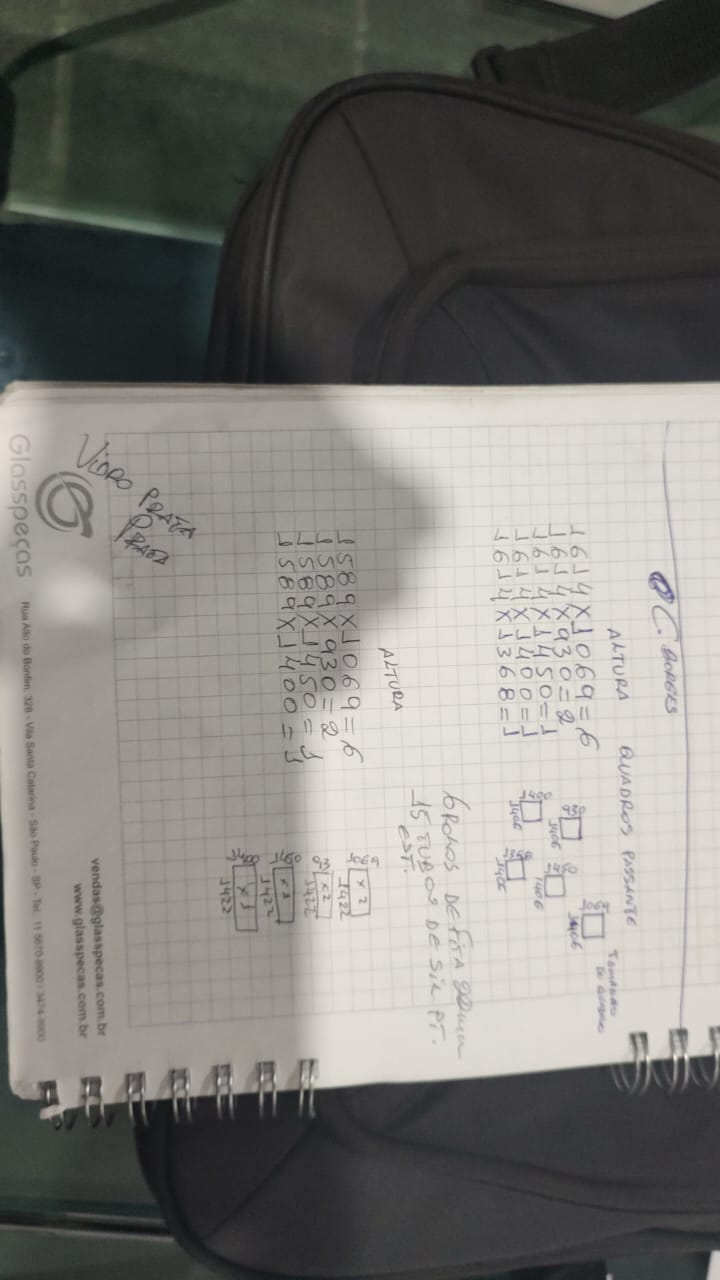 C. BORGES
ALTURA QUADROS PASSANTE
1614 X 1069 = 6
1614 X 930 = 2
1614 X 1450 = 1
1614 X 1400 = 1
1614 X 1368 = 1
TAMANHO
DO QUADRO
1406
1406
1406
1406
1406
6 ROLOS DE FITA
15 TUBOS DE SIL PT.
EST.
ALTURA
1589 X 1069 = 6
1589 X 930 = 2
1589 X 1450 = 1
1589 X 1400 = 1
x 2
1422
x 2
1422
x 1
1422
x 1
1422
VIDRO PRATA
PRATA
Glasspeças
vendas@glasspecas.com.br
www.glasspecas.com.br
Rua Alto do Bonfim, 328 - Vila Santa Catarina - São Paulo - SP - Tel: 11 5670-8900 / 3474-8900